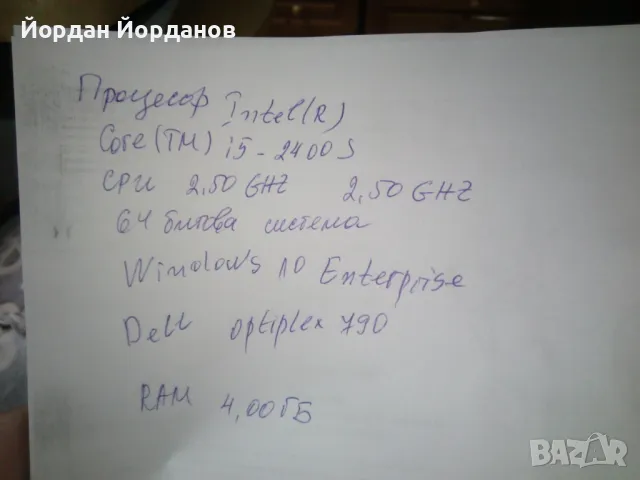 Йордан Йорданов
Процесор Intel(R)
Core(TM) i5-2400S
CPU 2,50 GHZ 2,50 GHZ
64 битова система
Windows 10 Enterprise
Dell optiplex 790
RAM 4,00ГБ
BAZAR